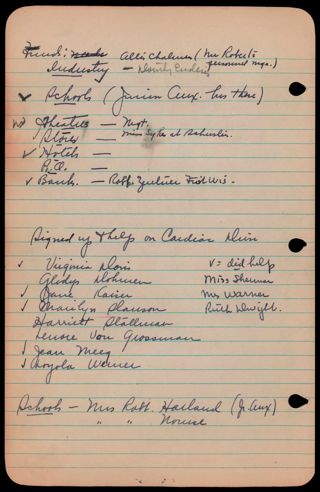 Fund: Allis Chalmers (Mr Roberts
personnel mgr.)
Industry —
✓ Schools (Junior Aux. has these)
Theatres — Mgt.
Stores — Miss Sykes at
✓ Hotels —
R.R. —
✓ Bank. — Robt. Zentner First Wis.
Signed up to help on Cardiac Drive
✓ Virginia Davis ✓ = did help
Gladys Dohmen Miss Sherman
✓ Jane Kaiser Mrs Warner
✓ Marilyn Slauson Ruth Dwight.
Harriett Stallman
Lenore Von Grossman
✓ Jean Meeg
✓ Loyola Weiner
Schools — Mrs Robt. Harland (Jr. Aux)
" " Nourse